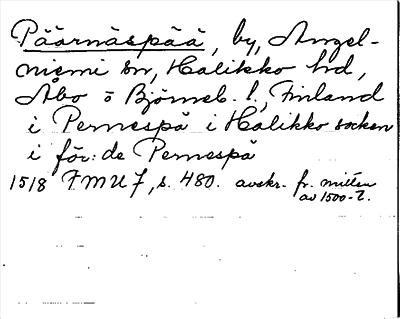 Päärnäspää, by, Angel-
niemi sn, Halikko hd,
Åbo o Björneb. l., Finland
i Pernespä i Halikko socken
i för: de Pernespä
1518 FMU 7, s. 480. avskr. fr. mitten
av 1500-t.